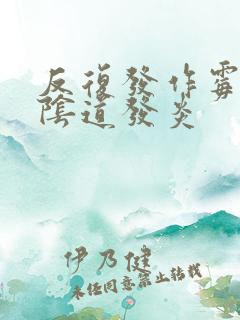 反復發作霉
陰道發炎
伊乃健
未经同意禁止转载